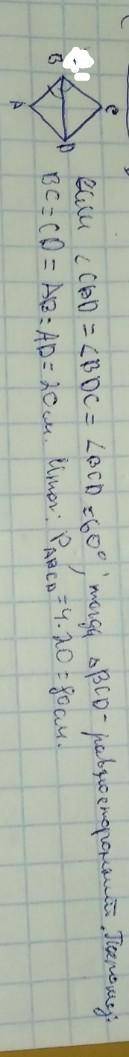 B
C
A
D
если ∠CBD = ∠BDC = ∠BCD = 60°, тогда ΔBCD - равносторонний. Поэтому:
BC = CD = AB = AD = 20 см. Итог: P ABCD = 4·20 = 80 см.